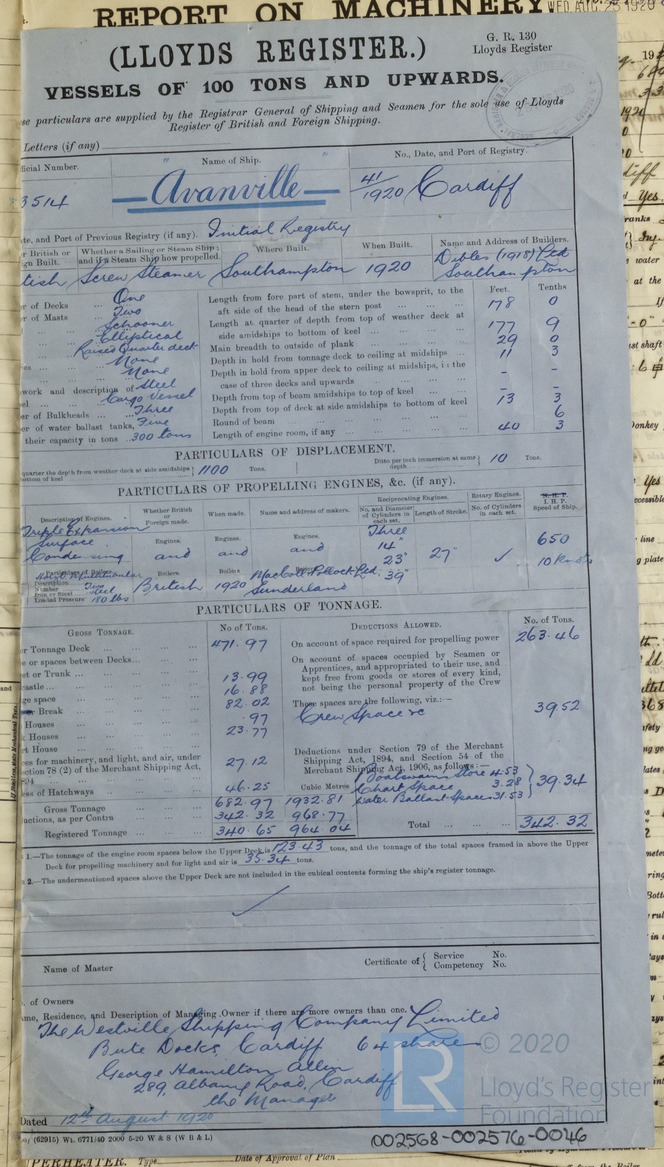 REPORT ON MACHINERY
WED. AUG. 25 1920
(LLOYDS REGISTER.)
G. R. 130
Lloyds Register
VESSELS OF 100 TONS AND UPWARDS.
se particulars are supplied by the Registrar General of Shipping and Seamen for the sole use of Lloyds
Register of British and Foreign Shipping.
Letters (if any)
ficial Number. Name of Ship. No., Date, and Port of Registry.
3514 "Avanville" 41/1920 Cardiff
te, and Port of Previous Registry (if any). Initial Registry
r British or
gn Built. Whether a Sailing or Steam Ship; and if a Steam Ship how propelled. Where Built. When Built. Name and Address of Builders.
tish Screw Steamer Southampton 1920 Dibles (1918) Ltd
Southampton
r of Decks ... One
r of Masts ... Two
Schooner
Elliptical
Raised Quarter deck
None
None
work and description of Steel
el ... Cargo Vessel
er of Bulkheads ... Three
er of water ballast tanks, Five
their capacity in tons 300 tons
Feet. Tenths
Length from fore part of stem, under the bowsprit, to the
aft side of the head of the stern post ... 178 0
Length at quarter of depth from top of weather deck at
side amidships to bottom of keel ... 177 9
Main breadth to outside of plank ... 29 0
Depth in hold from tonnage deck to ceiling at midships ... 11 3
Depth in hold from upper deck to ceiling at midships, in the
case of three decks and upwards ... - -
Depth from top of beam amidships to top of keel ... - -
Depth from top of deck at side amidships to bottom of keel 13 3
Round of beam ... 6
Length of engine room, if any ... 40 3
PARTICULARS OF DISPLACEMENT.
quarter the depth from weather deck at side amidships
bottom of keel 1100 Tons. Ditto per inch immersion at same depth 10 Tons.
PARTICULARS OF PROPELLING ENGINES, &c. (if any).
Description of Engines. Whether British or Foreign made. When made. Name and address of makers. Reciprocating Engines. Rotary Engines. N.H.P. I.H.P. Speed of Ship.
No. and Diameter of Cylinders in each set. Length of Stroke. No. of Cylinders in each set.
Triple Expansion
Surface
Condensing
Engines. and Engines. and Engines. and
Three
14"
23"
39"
27"
650
10 Knots
Particulars of Boilers
Description
Number Two
Iron or Steel Steel
Loaded Pressure 180 lbs
Boilers British Boilers 1920 Boilers MacColl & Pollock Ltd.
Sunderland
PARTICULARS OF TONNAGE.
GROSS TONNAGE. No of Tons.
r Tonnage Deck ... 471.97
e or spaces between Decks...
et or Trunk ... 13.99
castle ... 16.88
ge space ... 82.02
Break ... .97
Houses ... 23.77
k Houses
rt House
es for machinery, and light, and air, under
ection 78 (2) of the Merchant Shipping Act,
94 ... 27.12
ess of Hatchways ... 46.25 Cubic Metres
Gross Tonnage 682.97 1932.81
uctions, as per Contra 342.32 968.77
Registered Tonnage 340.65 964.04
DEDUCTIONS ALLOWED. No. of Tons.
On account of space required for propelling power 263.46
On account of spaces occupied by Seamen or
Apprentices, and appropriated to their use, and
kept free from goods or stores of every kind,
not being the personal property of the Crew
These spaces are the following, viz.:—
Crew Space &c 39.52
Deductions under Section 79 of the Merchant
Shipping Act, 1894, and Section 54 of the
Merchant Shipping Act, 1906, as follows:—
Boatswains Store 4.53
Chart Space 3.28
Water Ballast Space 31.53
39.34
Total ... 342.32
1.—The tonnage of the engine room spaces below the Upper Deck is 123.43 tons, and the tonnage of the total spaces framed in above the Upper
Deck for propelling machinery and for light and air is 35.34 tons.
2.—The undermentioned spaces above the Upper Deck are not included in the cubical contents forming the ship's register tonnage.
Name of Master
Certificate of { Service No.
Competency No.
. of Owners
me, Residence, and Description of Managing Owner if there are more owners than one.
The Westville Shipping Company Limited
Bute Docks, Cardiff 64 shares
George Hamilton Allin
289, Albany Road, Cardiff
the Manager
Dated 12th August 1920
(62915) Wt. 6771/40 2000 5-20 W & S (W B & L)
LR © 2020
Lloyd's Register
Foundation
002568-002576-0046
PERHEATER. Type
Date of Approval of Plan